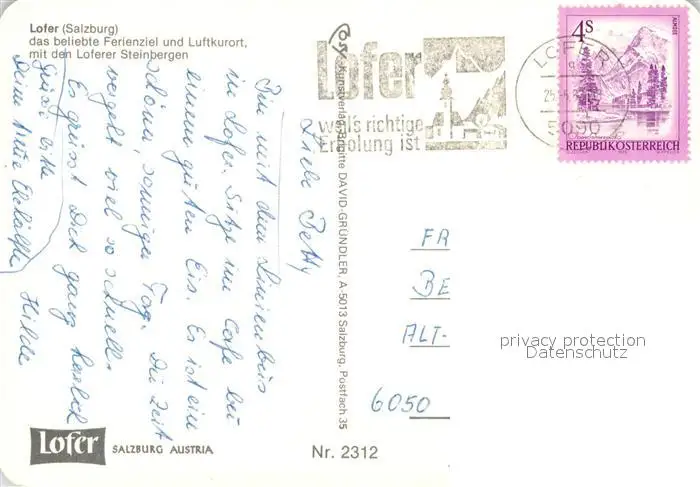 Lofer (Salzburg)
das beliebte Ferienziel und Luftkurort,
mit den Loferer Steinbergen
Liebe Betty
Bin mit dem Linienbus
in Lofer. Sitze im Cafe bei
einem guten Eis. Es ist ein
schöner, sonniger Tag. Die Zeit
vergeht viel so schnell.
Es grüsst Dich ganz herzlich
Hilde
Grüsse bitte
Deine
Kunstverlag Brigitte DAVID-GRÜNDLER, A-5013 Salzburg, Postfach 35
Lofer
weil's richtige
Erholung ist
LOFER
5090
4S
ALMSEE
REPUBLIK ÖSTERREICH
FA
BE
ALT-
6050
privacy protection
Datenschutz
Lofer
SALZBURG AUSTRIA
Nr. 2312